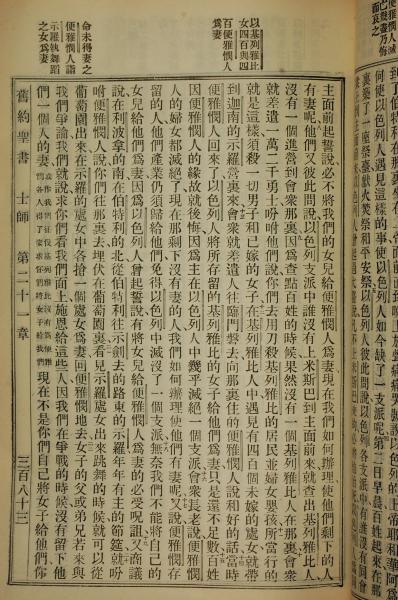 以基列雅比
女四百與四
百便雅憫人
爲妻
命未得妻之
便雅憫人詣
示羅執舞蹈
之女爲妻
主面前起誓說必不將我們的女兒給便雅憫人爲妻現在我們如何辦理使他們剩下的人
有妻呢他們又彼此問說以色列支派中誰沒有上米斯巴到主面前來就查出基列雅比人
沒有一個進營到會衆那裏因爲查點百姓的時候果然沒有一個基列雅比人在那裏會衆
就差遣一萬二千勇士吩咐他們說你們去用刀殺基列雅比的居民並婦女嬰孩所當行的
就是這樣須殺一切男子和已嫁的女子在基列雅比人中遇見有四百個未嫁的處女就帶
到迦南的示羅營裏來會衆就差遣人往臨門磐去向那裏住的便雅憫人說和好的話當時
便雅憫人回來了以色列人將所存留的基列雅比的女子給他們爲妻只是還不足數百姓
因便雅憫人的緣故就後悔因爲主在以色列人中幾乎滅絕一個支派會衆長老說便雅憫
人的婦女都滅絕了現在那剩下沒有妻的人我們如何辦理使他們有妻呢又說便雅憫存
留的人他們產業仍須歸給他們免得以色列中滅沒了一個支派無奈我們不能將自己的
女兒給他們爲妻因爲以色列人曾起誓說有將女兒給便雅憫人爲妻的必受呪詛又商議
說在利波拿的南在伯特利的北從伯特利往示劍去的路東的示羅年年有主的節筵就吩
咐便雅憫人說你們往那裏去埋伏在葡萄園裏看見示羅處女出來跳舞的時候就可以從
葡萄園出來在示羅的處女中各搶一個處女爲妻回便雅憫地去女子的父或弟兄若來與
我們爭論我們就說求你們看我們面上施恩給這些人因我們在爭戰的時候沒有留下他
們一個人的妻 現在不是你們自己將女子給他們你
舊約聖書 士師 第二十一章 三百八十三